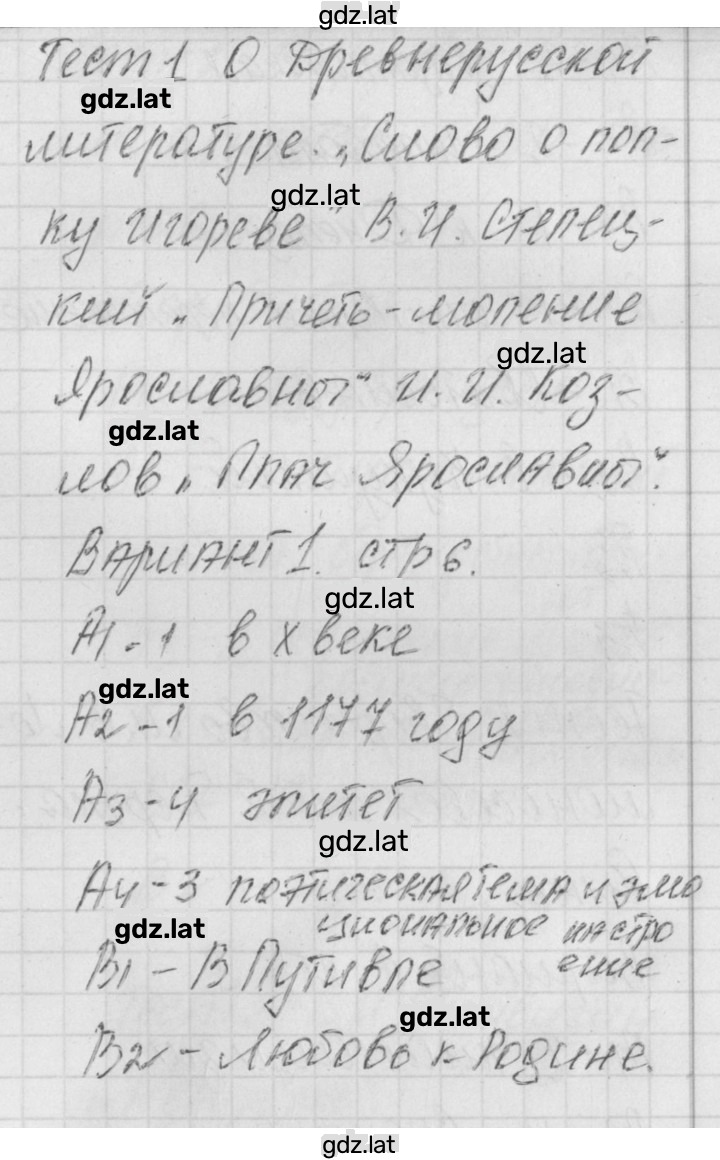 gdz.lat
Тест 1 О Древнерусской
gdz.lat
литературе. „Слово о пол-
gdz.lat
ку Игореве" В. И. Степец-
кий „Причеть-моление
gdz.lat
Ярославны" И. И. Коз-
gdz.lat
лов „Плач Ярославны".
Вариант 1. стр 6.
gdz.lat
А1 - 1 в X веке
gdz.lat
А2 - 1 в 1177 году
А3 - 4 эпитет
gdz.lat
А4 - 3 поэтическая тема и эмо
циональное настро
gdz.lat
ение
В1 - В Путивле
gdz.lat
В2 - Любовь к Родине.
gdz.lat